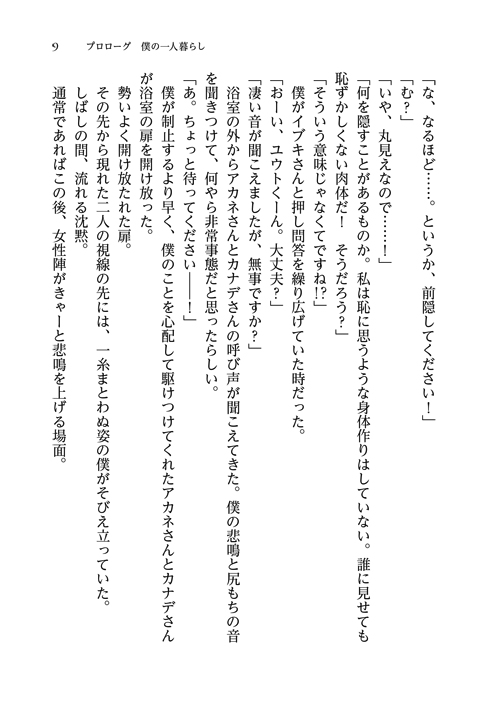 9　プロローグ　僕の一人暮らし
「な、なるほど……。というか、前隠してください！」
「む？」
「いや、丸見えなので……！」
「何を隠すことがあるものか。私は恥に思うような身体作りはしていない。誰に見せても
恥ずかしくない肉体だ！　そうだろう？」
「そういう意味じゃなくてですね!?」
　僕がイブキさんと押し問答を繰り広げていた時だった。
「おーい、ユウトくーん。大丈夫？」
「凄い音が聞こえましたが、無事ですか？」
　浴室の外からアカネさんとカナデさんの呼び声が聞こえてきた。僕の悲鳴と尻もちの音
を聞きつけて、何やら非常事態だと思ったらしい。
「あ。ちょっと待ってください――！」
　僕が制止するより早く、僕のことを心配して駆けつけてくれたアカネさんとカナデさん
が浴室の扉を開け放った。
　勢いよく開け放たれた扉。
　その先から現れた二人の視線の先には、一糸まとわぬ姿の僕がそびえ立っていた。
　しばしの間、流れる沈黙。
　通常であればこの後、女性陣がきゃーと悲鳴を上げる場面。